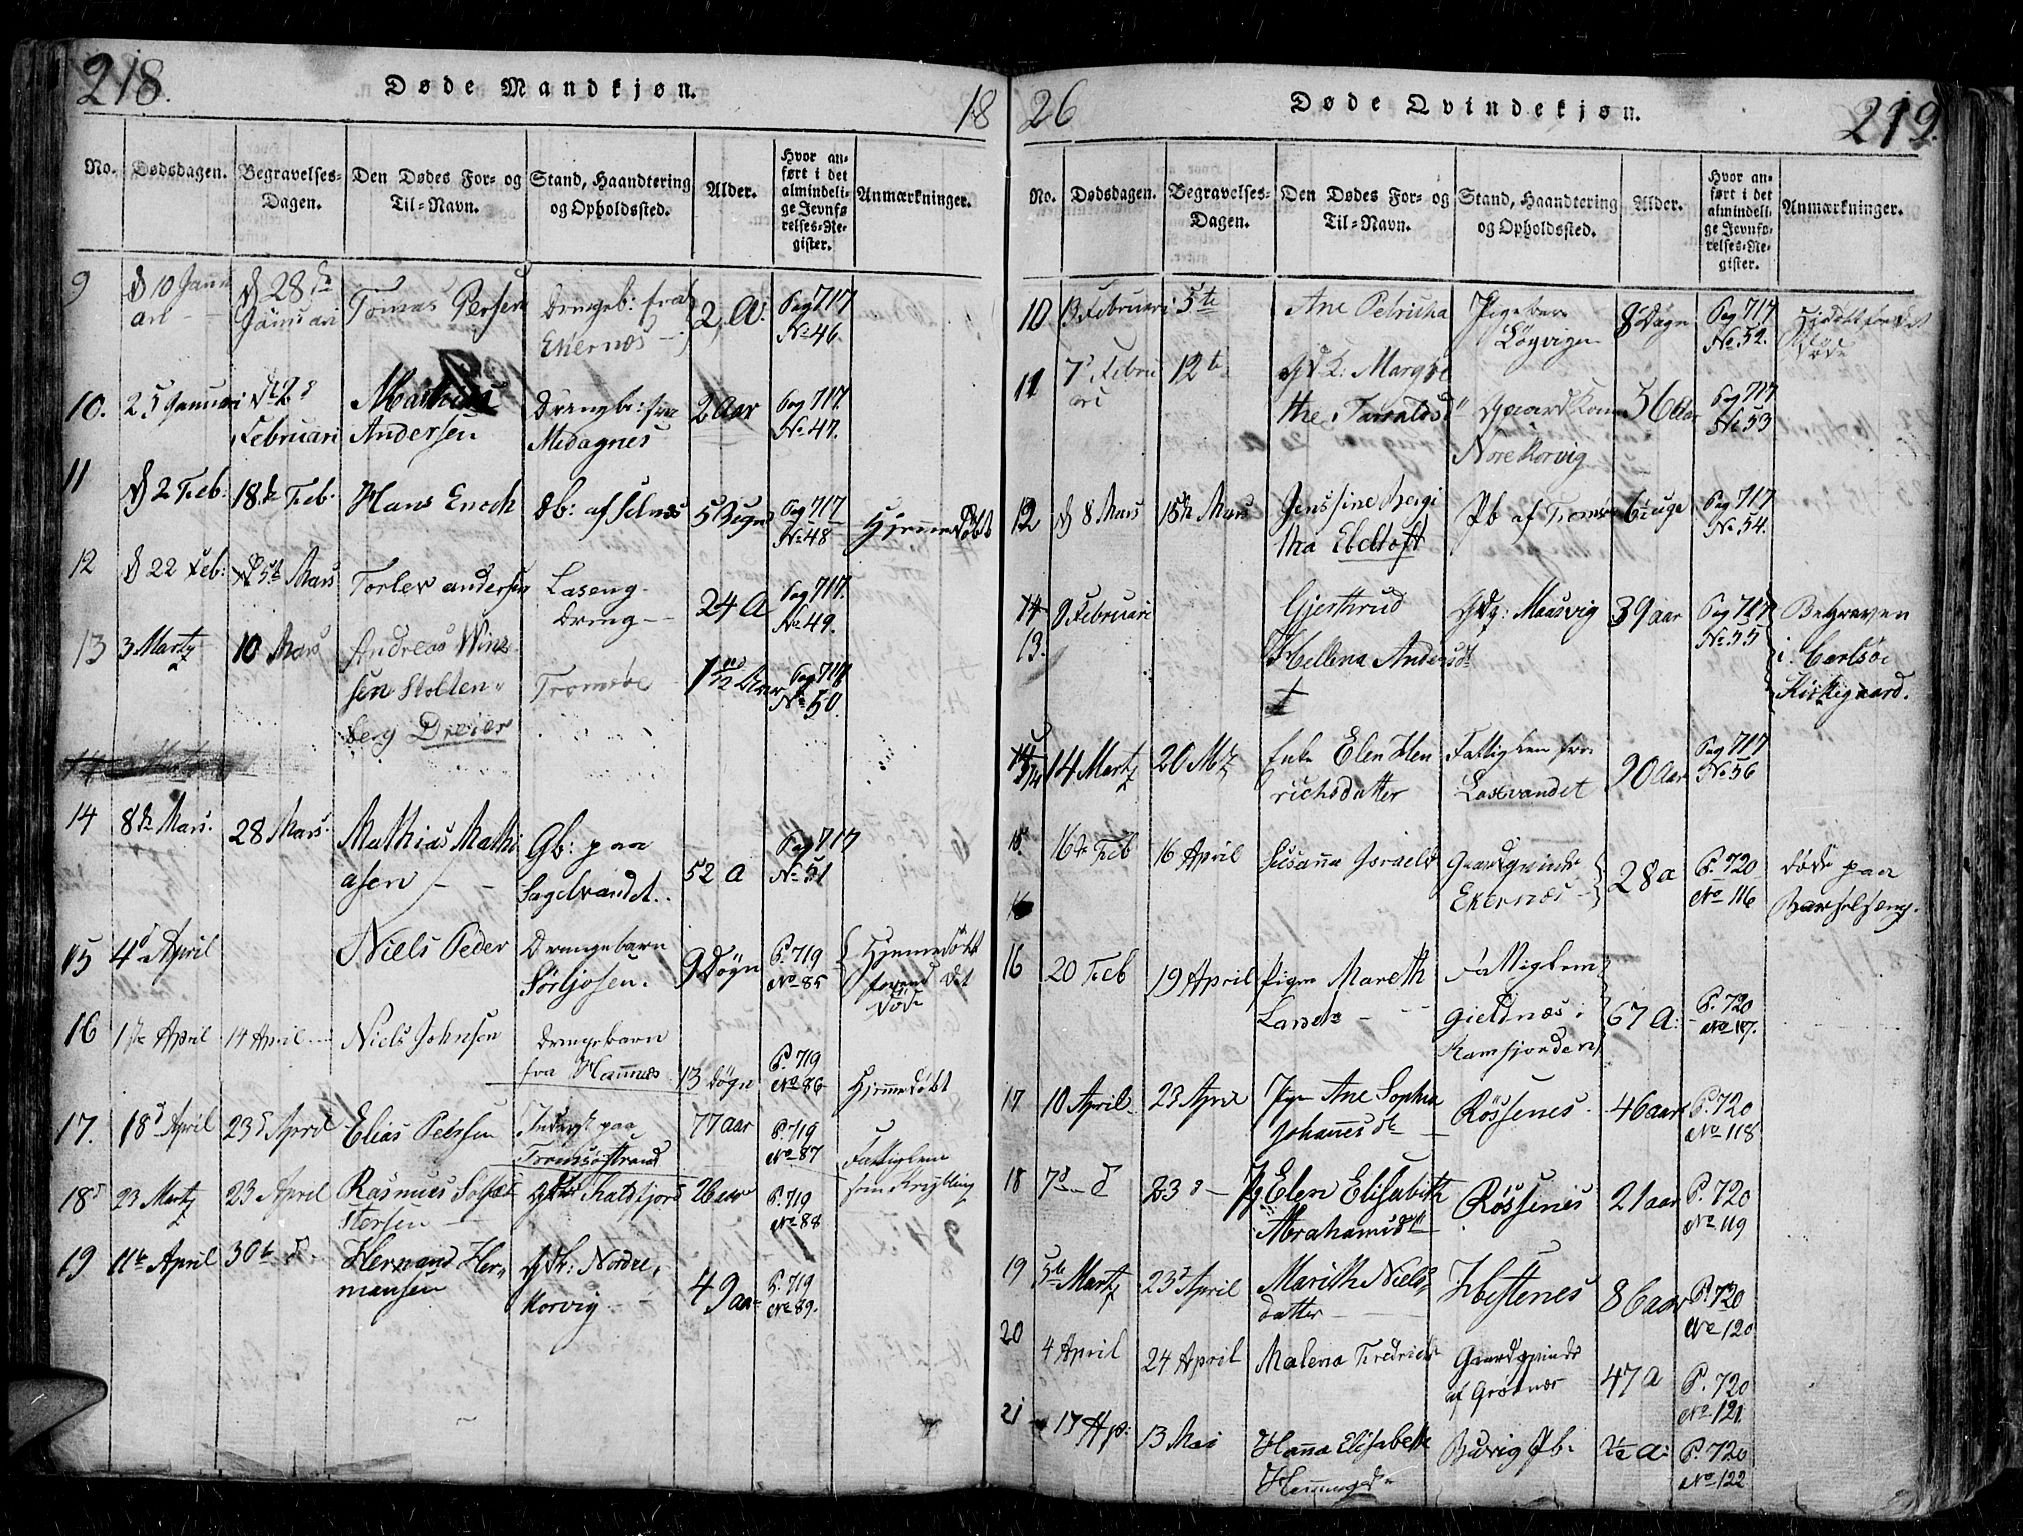 218.
Døde Mandkjøn.
18
No. Dødsdagen. Begravelses-Dagen. Den Dødes For- og Til-Navn. Stand, Haandtering og Opholdssted. Alder. Hvor anført i det almindelige Jevnførelses-Register. Anmærkninger.
9 D 10 Januari D 28de Januari Tomas Persen Drengeb: fra Ekernæs 2 A: Pag 717 No 46.
10. 25 Januari Februari Andersen Drengb: fra Medagnes 2 Aar Pag 717. No 47.
11 D 2 Feb: 18de Feb. Hans Enoch Db: af Selnæs 5 Pag 717 No 48 Hjemmedøbt
12 D 22 Feb: 5te Mars Torlev andersen Dreng 24 A Pag 717. No 49.
13 3 Martz 10 Mars Andreas Stoltenberg Dreier Tromsøe Pag 717 No 50.
14 8de Mars. 28 Mars. Mathias Mathiasen Gb: paa Sagelvandet. 52 a Pag 717 No 51
15 4d April Niels Peder Drengebarn Sörljosen. 9 Døgn P. 719 No 85 Hjemmedöbt forend det döde
16 1te April 14 April Niels Johnsen Drengebarn fra Hannæs 13 Døgn P. 719 No 86 Hjemmedöbt
17. 18d April 23d April Elias Petersen paa Tromsøstrand 77 aar P. 719 No 87 Fattiglem
18d 23 Martz 23 April Rasmus Katsfjord 26 aar P. 719 No 88
19 11te April 30te d. Hermand Hermansen Gdk: Nordre Korvig 49 aa P. 719 No 89.
26
Døde Qvindekjøn.
219.
No. Dødsdagen. Begravelses-Dagen. Den Dødes For- og Til-Navn. Stand, Haandtering og Opholdssted. Alder. Hvor anført i det almindelige Jevnførelses-Register. Anmærkninger.
10 Februari 5te Ane Petricka Pigebarn 8 Dage Pag 717 No 52. döde
11 7d Februari 12te Gdk: Margrethe Gaardkone Nore Korvig 56 Aar Pag 717 No 53
12 D 8 Mars 15de Mars Jenssine Bergitha Ebeltoft Pb af Tromsø 6 uge Pag 717 No 54.
13. 9 Februari Gjerthrud Hellena Andersdt Maasvig 39 aar Pag 717 No 55 Begraven i Carlsøe Kirkegaard.
14 14 Martz 20 Mtz Enke Elen Henrichsdatter Fattiglem fra Laxevandet 90 Aar Pag 717 No 56
15. 16de Feb 16 April Susanna Israelsd Gaardqvinde Ekernæs 28 a P. 720 No 116 döde paa Barselsæng.
16 20 Feb 19 April Pigen Mareth Larsdr Fattiglem Gieldnæs i Ramfjorden 67 A: P. 720 No 117.
17 10 April 23 April Pigen Ane Sophia Johannesdt Røssenes 46 aar P. 720 No 118
18 7d d 23d Pg Elen Elisabeth Abrahamsdtt Røssenes 21 aar P. 720 No 119
19 5te Martz 23d April Marith Nielsdatter Hestenes 86 aar P. 720 No 120
20 4 April 24 April Malena Fredrichs Gaardqvinde af Grötnæs 47 A P. 720 No 121.
21 17 Ap: 13 Mai Hanna Elisabeth Pb. 1/2 a: P. 720 No 122